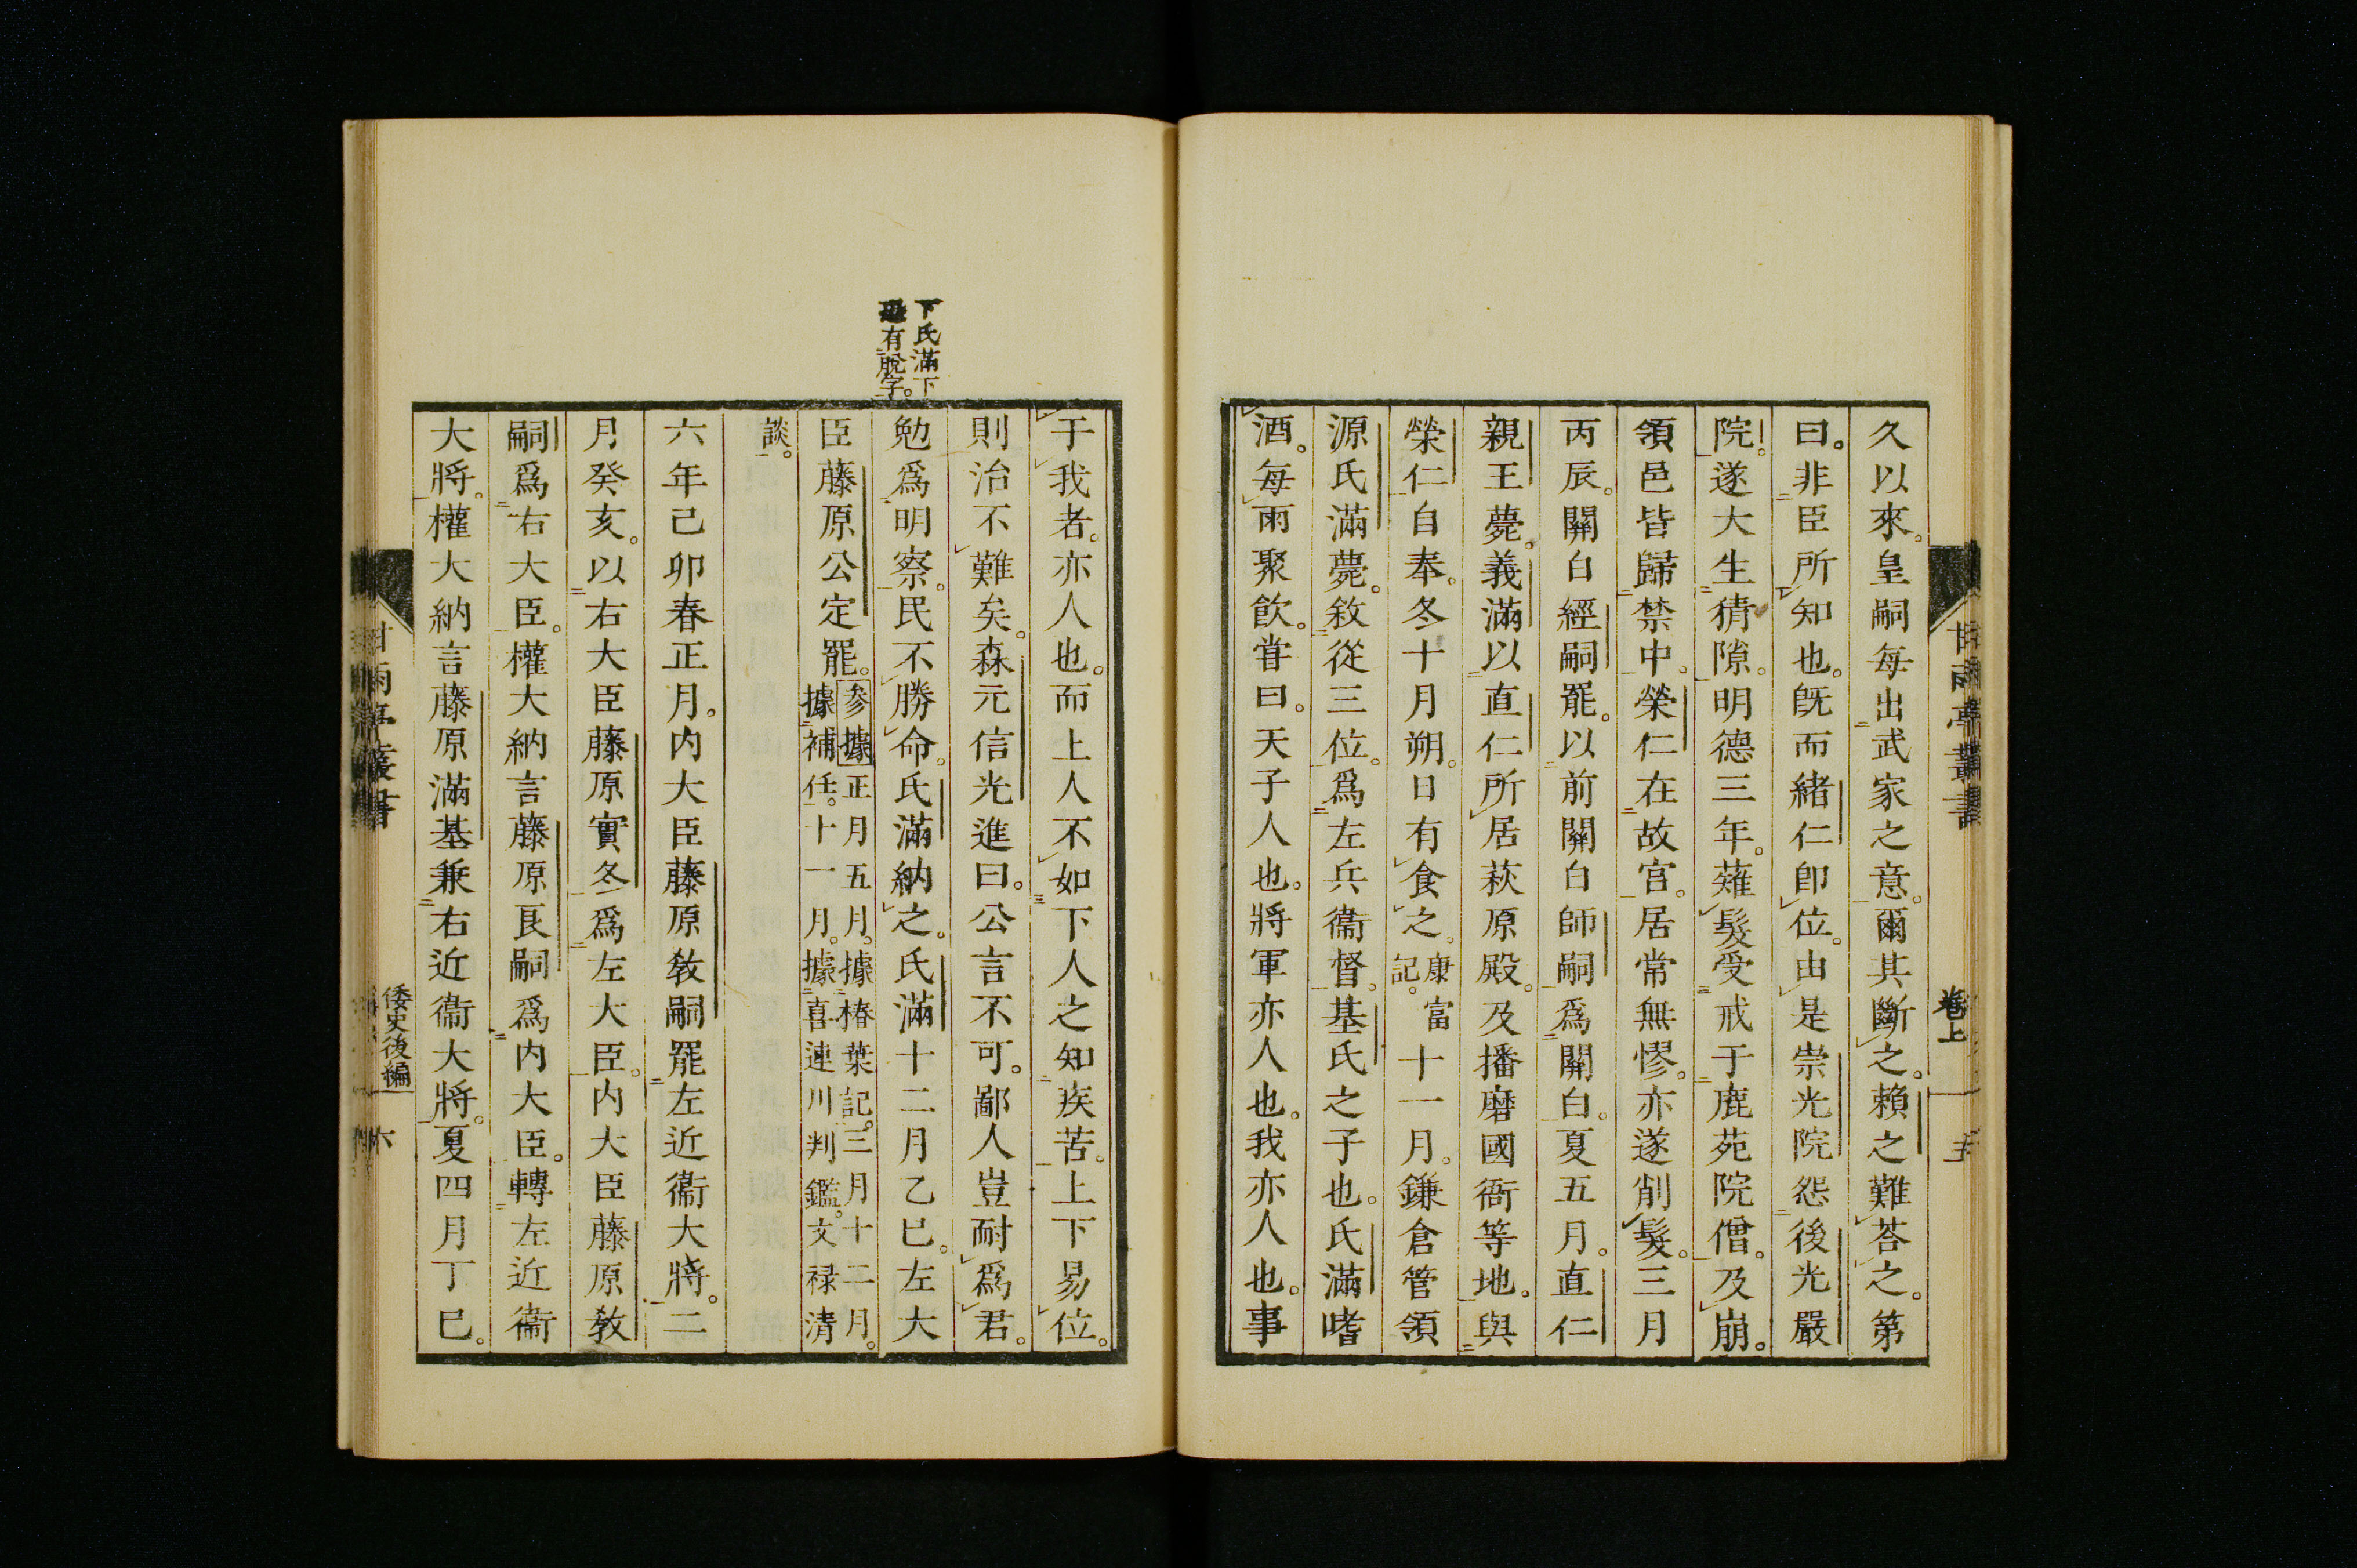 久以來。皇嗣每出武家之意。爾其斷之。賴之難荅之。第
曰。非臣所知也。旣而緒仁卽位。由是崇光院怨後光嚴
院。遂大生猜隙。明德三年。薙髮受戒于鹿苑院僧。及崩。
領邑皆歸禁中。榮仁在故宮。居常無憀。亦遂削髮。三月
丙辰。關白經嗣罷。以前關白師嗣爲關白。夏五月。直仁
親王薨。義滿以直仁所居萩原殿。及播磨國衙等地。與
榮仁自奉。冬十月朔。日有食之。康富
記。十一月。鎌倉管領
源氏滿薨。敘從三位。爲左兵衞督。基氏之子也。氏滿嗜
酒。每雨聚飮。嘗曰。天子人也。將軍亦人也。我亦人也。事
甘雨亭叢書
卷上
五
下氏滿下
恐有脫字。
于我者。亦人也。而上人不如下人之知疾苦。上下易位。
則治不難矣。森元信光進曰。公言不可。鄙人豈耐爲君。
勉爲明察。民不勝命。氏滿納之。氏滿十二月乙巳。左大
臣藤原公定罷。參據正月五月。據椿葉記。三月十二月。
據補任。十一月。據喜連川判鑑。文祿清
談。
六年己卯春正月。內大臣藤原敎嗣罷左近衞大將。二
月癸亥。以右大臣藤原實冬爲左大臣。內大臣藤原敎
嗣爲右大臣。權大納言藤原良嗣爲內大臣。轉左近衞
大將。權大納言藤原滿基兼右近衞大將。夏四月丁巳。
甘雨亭叢書
倭史後編
六